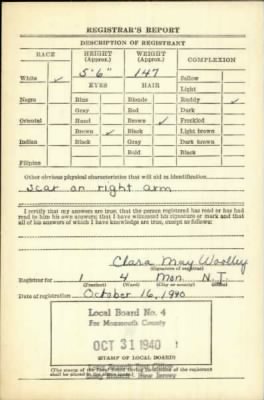 REGISTRAR'S REPORT
DESCRIPTION OF REGISTRANT
RACE HEIGHT (Approx.) WEIGHT (Approx.) COMPLEXION
White ✓ 5'6" 147 Sallow
EYES HAIR Light
Negro Blue Blonde Ruddy ✓
Gray Red Dark
Oriental Hazel Brown ✓ Freckled
Brown ✓ Black Light brown
Indian Black Gray Dark brown
Bald Black
Filipino
Other obvious physical characteristics that will aid in identification
scar on right arm
I certify that my answers are true; that the person registered has read or has had
read to him his own answers; that I have witnessed his signature or mark and that
all of his answers of which I have knowledge are true, except as follows:
Clara May Woolley
(Signature of registrar)
Registrar for 1 4 Mon N.J.
(Precinct) (Ward) (City or county) (State)
Date of registration October 16, 1940
Local Board No. 4
For Monmouth County
OCT 31 1940
STAMP OF LOCAL BOARD
(The stamp of the Local Board having jurisdiction of the registrant
shall be placed in the above space.)